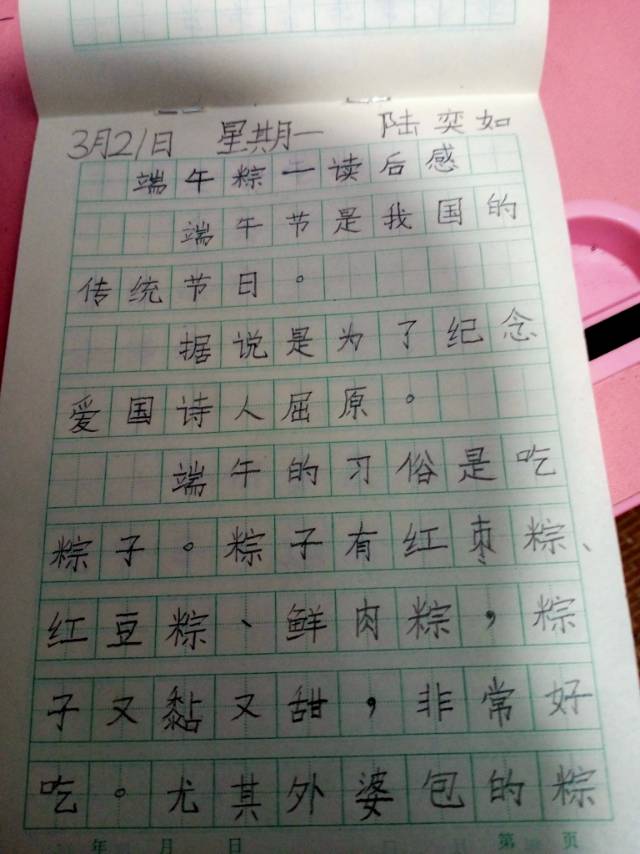 3月21日 星期一 陆奕如
端午粽一读后感
端午节是我国的
传统节日。
据说是为了纪念
爱国诗人屈原。
端午的习俗是吃
粽子。粽子有红枣粽、
红豆粽、鲜肉粽，粽
子又黏又甜，非常好
吃。尤其外婆包的粽
年 月 日 第 页